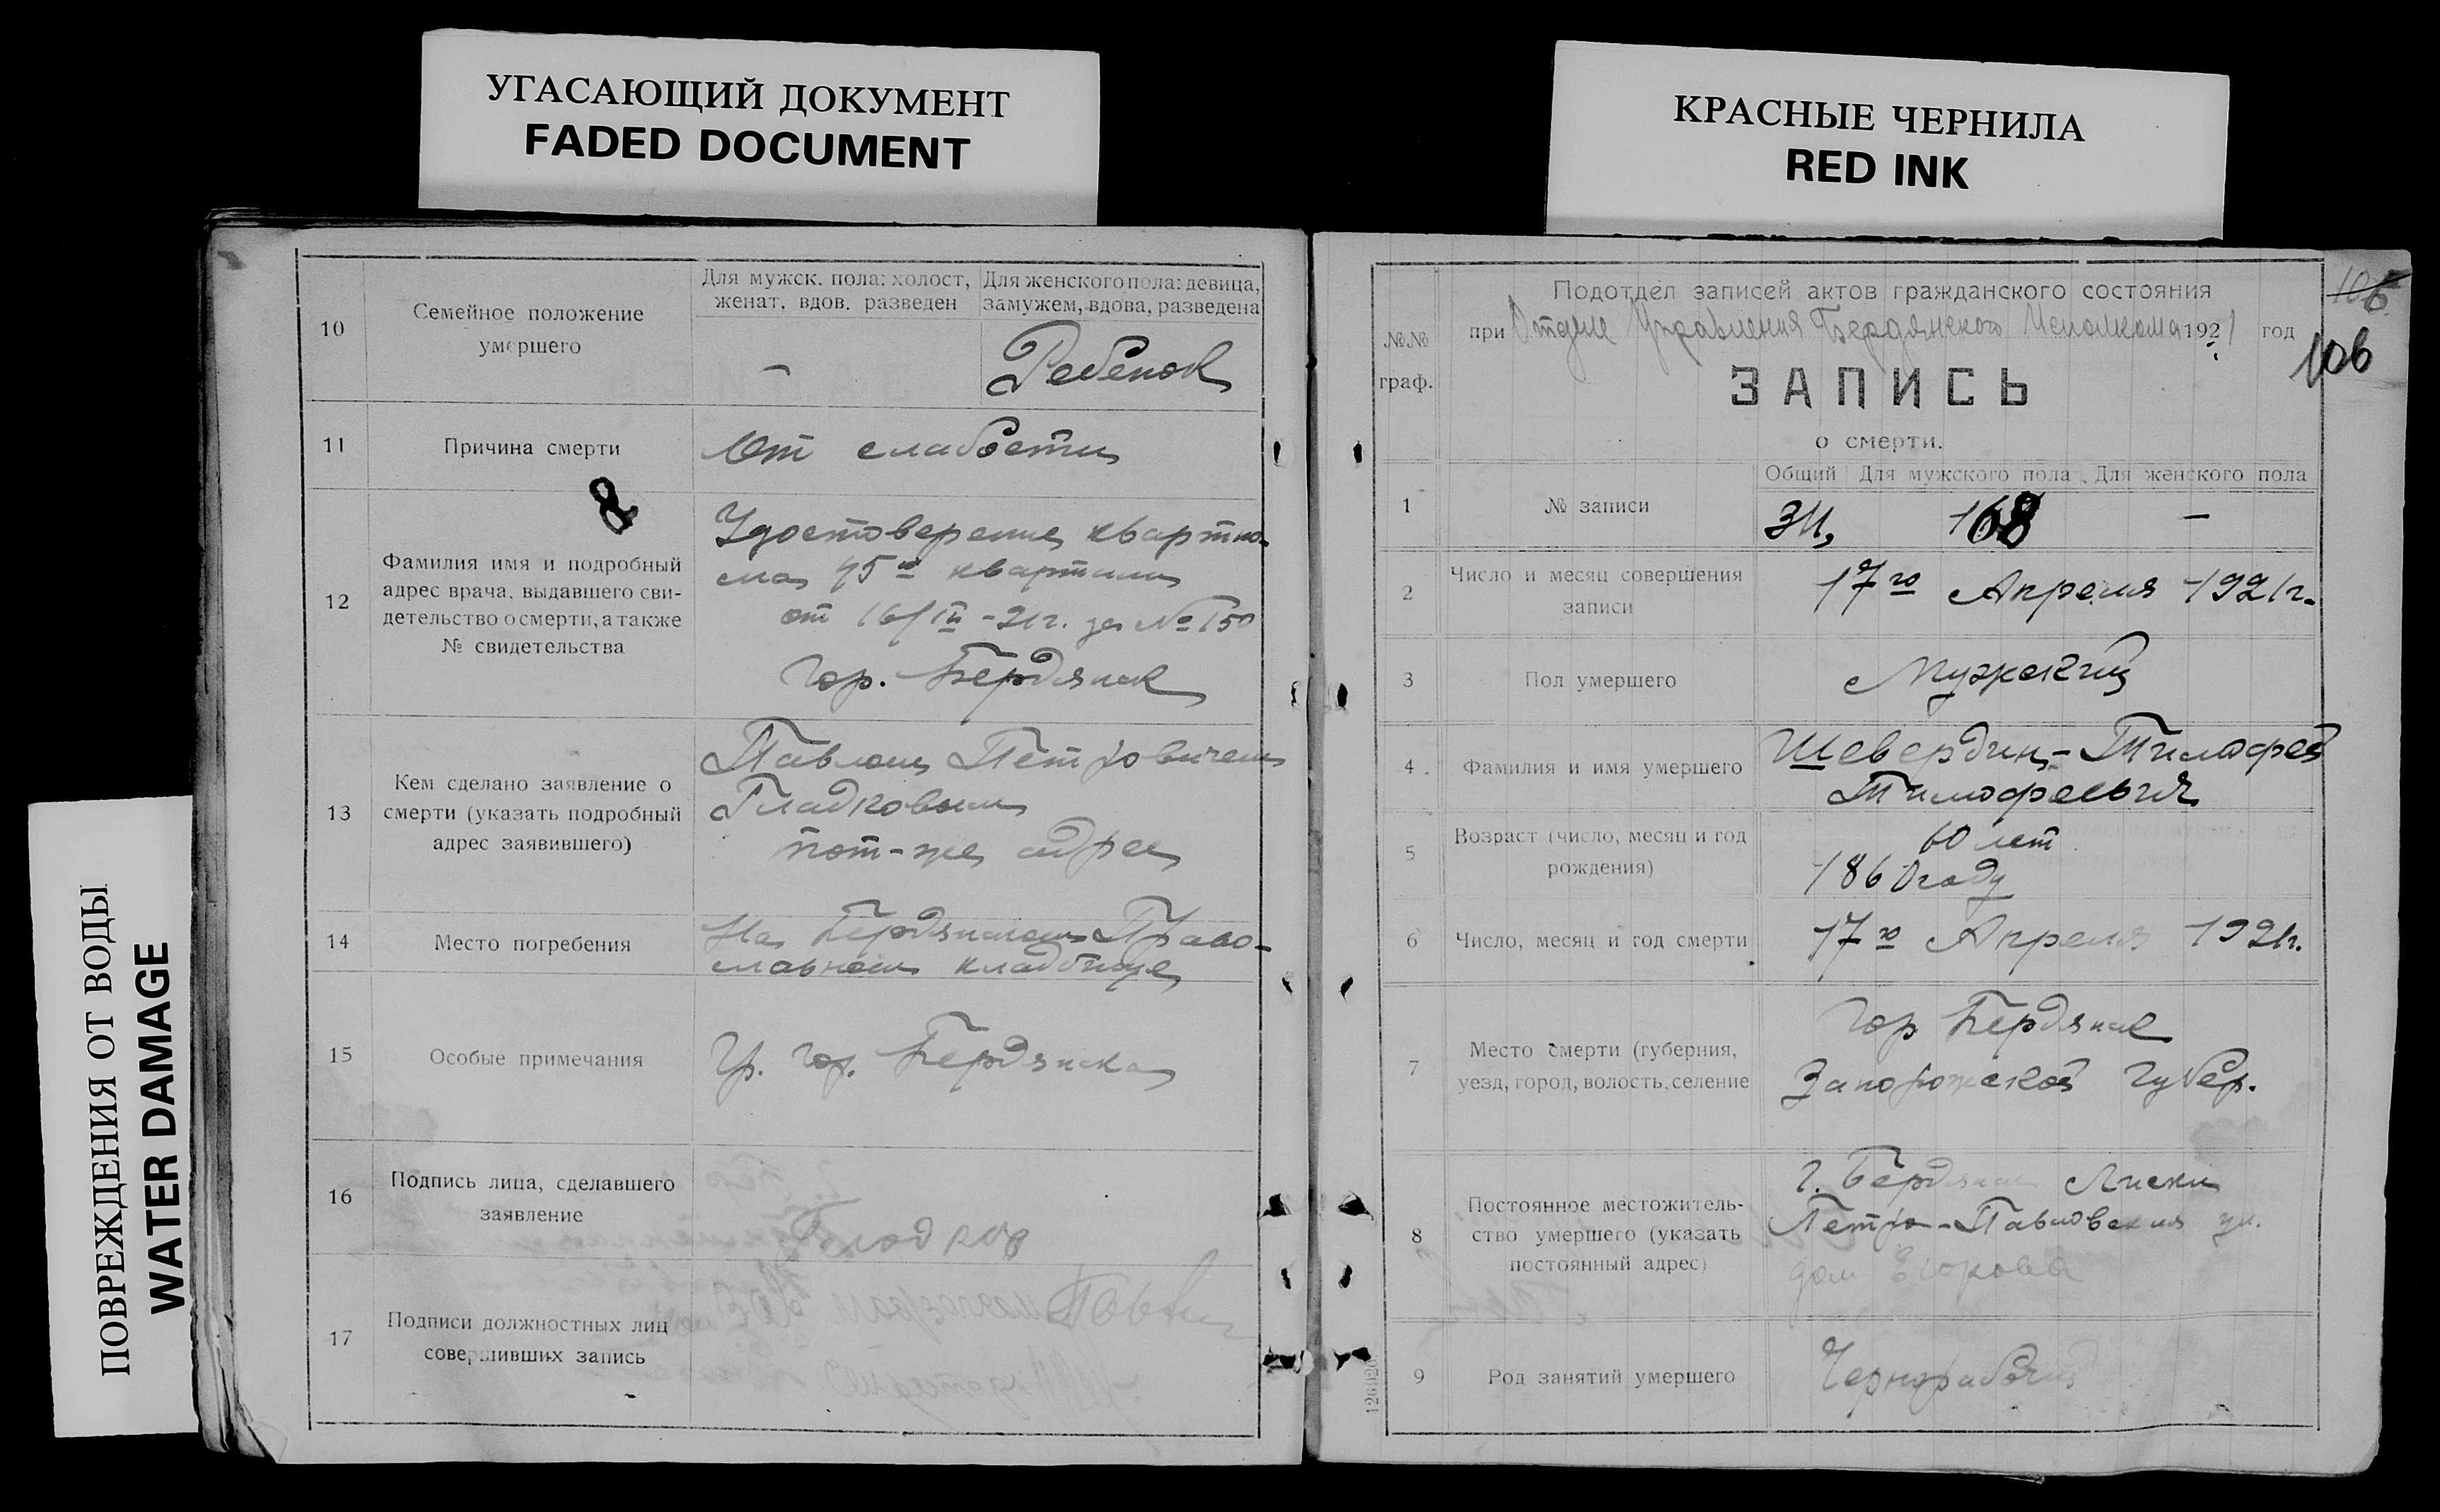 УГАСАЮЩИЙ ДОКУМЕНТ
FADED DOCUMENT
КРАСНЫЕ ЧЕРНИЛА
RED INK
ПОВРЕЖДЕНИЯ ОТ ВОДЫ
WATER DAMAGE
10
Семейное положение
умершего
Для мужск. пола: холост,
женат. вдов. разведен
Для женского пола: девица,
замужем, вдова, разведена
–
Ребенок
11
Причина смерти
От слабости
8
12
Фамилия имя и подробный
адрес врача, выдавшего сви-
детельство о смерти, а также
№ свидетельства
Удостоверение квартко-
ма 45го квартала
от 16/IV – 21г. за № 150
Гор. Бердянск
13
Кем сделано заявление о
смерти (указать подробный
адрес заявившего)
Павлом Петровичем
Гладковым
тот-же адрес
14
Место погребения
На Бердянском Право-
славном кладбище
15
Особые примечания
Гр. гор. Бердянска
16
Подпись лица, сделавшего
заявление
17
Подписи должностных лиц
совершивших запись
106
106
№№
граф.
Подотдел записей актов гражданского состояния
при Отделе Управления Бердянского Исполкома 1921 год
ЗАПИСЬ
о смерти.
Общий Для мужского пола Для женского пола
1
№ записи
311, 168 –
2
Число и месяц совершения
записи
17го Апреля 1921г.
3
Пол умершего
Мужский
4
Фамилия и имя умершего
Шевердин – Тимофей
Тимофеевич
5
Возраст (число, месяц и год
рождения)
60 лет
1860 году
6
Число, месяц и год смерти
17го Апреля 1921г.
7
Место смерти (губерния,
уезд, город, волость, селение
Гор Бердянск
Запорожской губер.
8
Постоянное местожитель-
ство умершего (указать
постоянный адрес)
г. Бердянск Лиски
Петро-Павловская ул.
дом Егорова
9
Род занятий умершего
Чернорабочий
126920